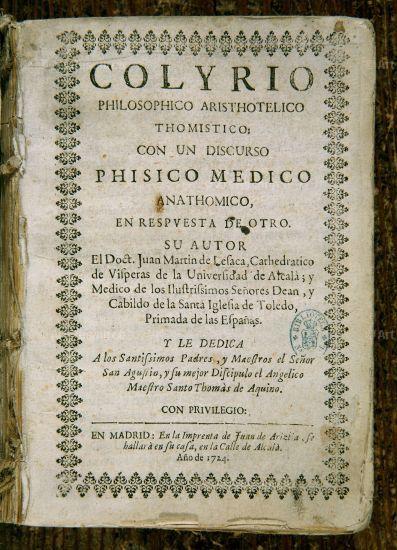 COLYRIO
PHILOSOPHICO ARISTHOTELICO
THOMISTICO;
CON UN DISCURSO
PHISICO MEDICO
ANATHOMICO,
EN RESPVESTA DE OTRO.
SU AUTOR
El Doct. Juan Martin de Lesaca, Cathedratico
de Visperas de la Universidad de Alcalà; y
Medico de los Ilustrissimos Señores Dean, y
Cabildo de la Santa Iglesia de Toledo,
Primada de las Españas.
Y LE DEDICA
A los Santissimos Padres, y Maestros el Señor
San Agustin, y su mejor Discipulo el Angelico
Maestro Santo Thomàs de Aquino.
CON PRIVILEGIO:
EN MADRID: En la Imprenta de Juan de Ariztia, se
hallarà en su casa, en la Calle de Alcalà.
Año de 1724.